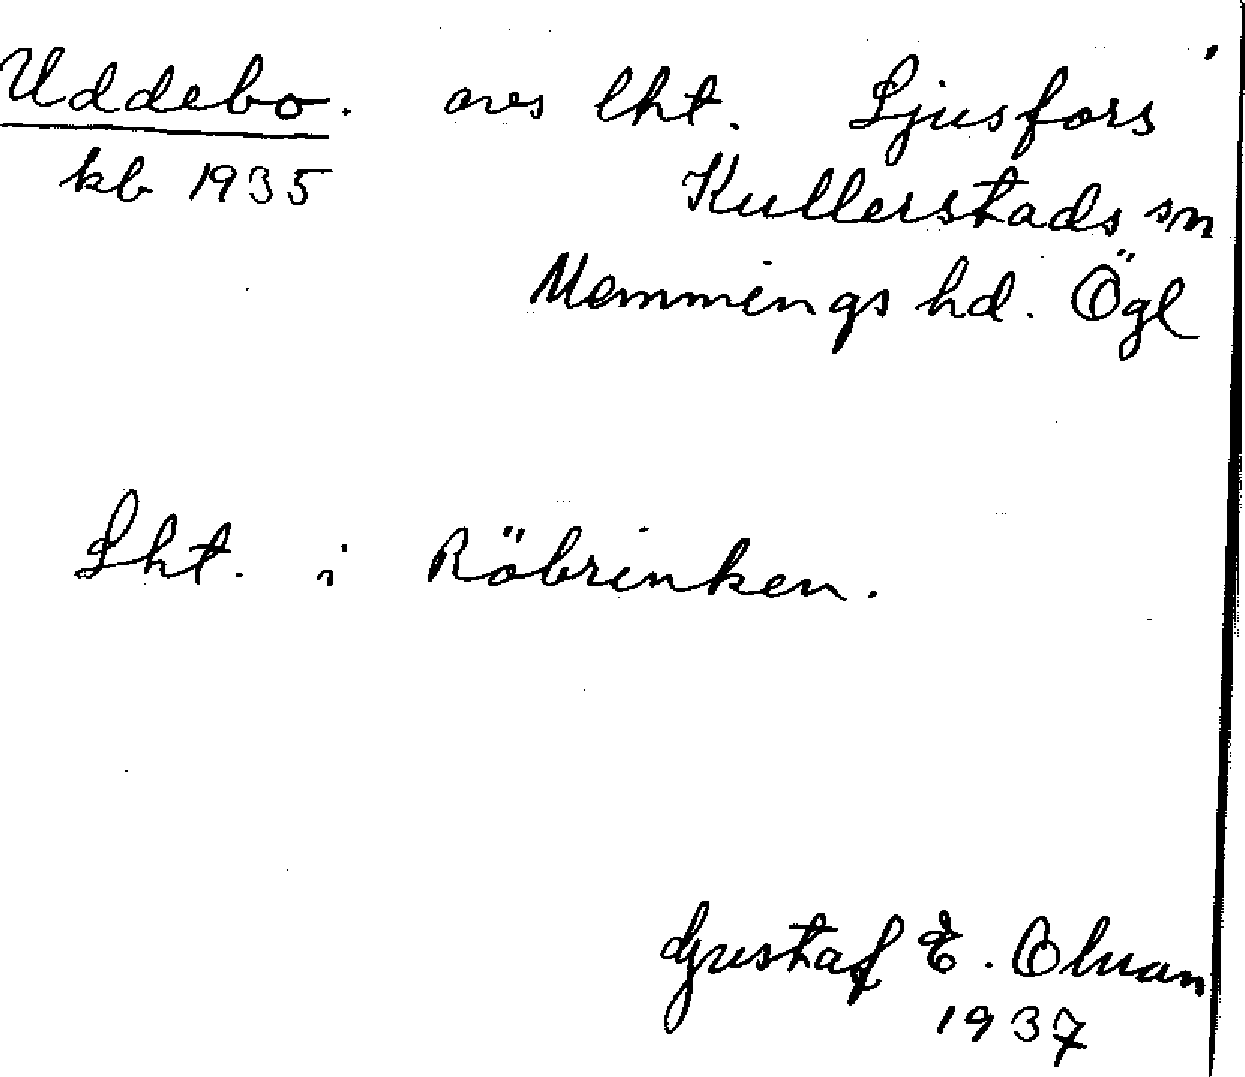 Uddebo. avs lht. Ljusfors
kb 1935 Kullerstads sn
Memmings hd. Ögl
Lht. i Röbrinken.
Gustaf E. Oluan
1937